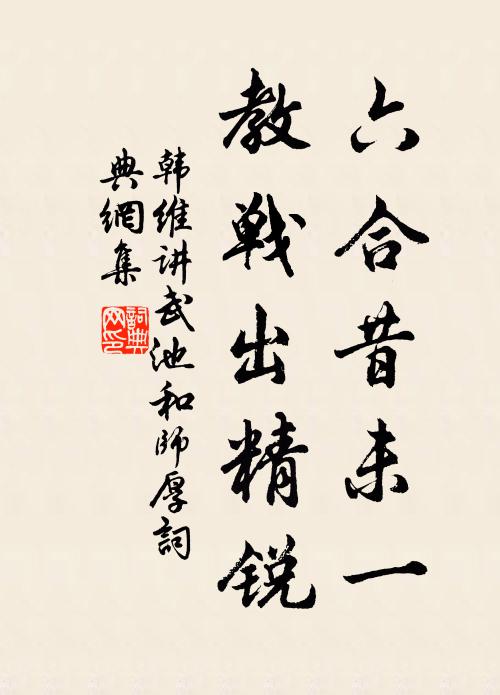 六合昔未一
教戰出精锐
韩维讲武池和师厚詞
典網集
詞典
网印